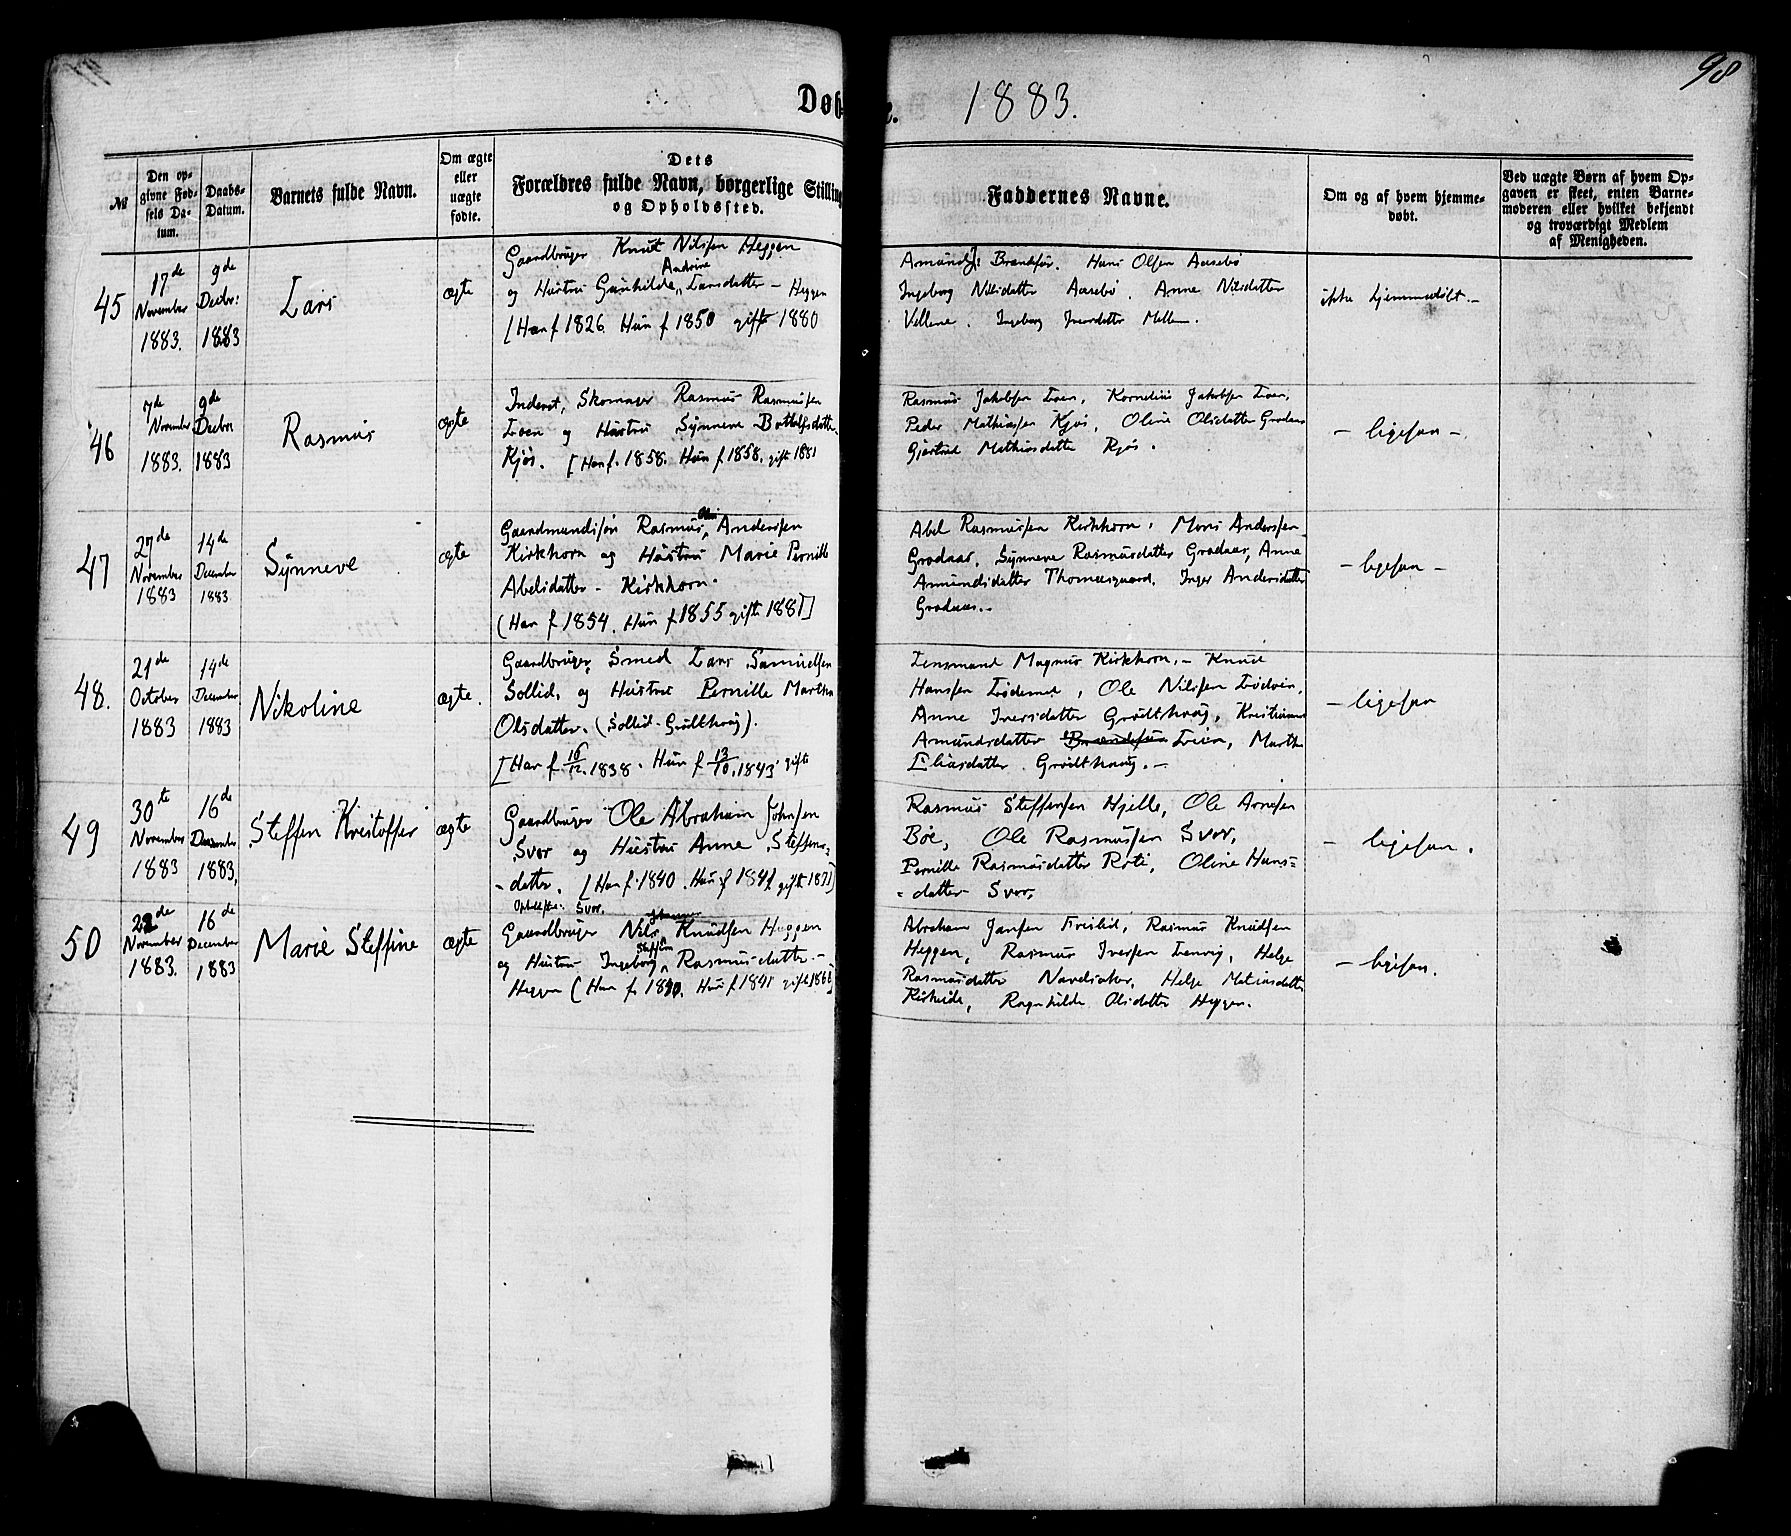 98
Døb
e. 1883.
№
Den op-
givne Fød-
sels Da-
tum.
Daabs-
Datum.
Barnets fulde Navn.
Om ægte
eller
uægte
fødte.
Dets
Forældres fulde Navn, borgerlige Stilling
og Opholdssted.
Faddernes Navne.
Om og af hvem hjemme-
døbt.
Ved uægte Børn af hvem Op-
gaven er skeet, enten Barne-
moderen eller hvilket bekjendt
og troværdigt Medlem
af Menigheden.
45
17de
November
1883.
9de
Decbr:
1883
Lars
ægte
Gaardbruger Knut Nilssen Heggen
Andrine
og Hustru Gunhilde Larsdatter – Heggen
[Han f 1826. Hun f 1850 gifte 1880
Amund J: Brandsør. Hans Olsen Aasebø
Ingeborg Nilsdatter Aasebø. Anne Nilsdatter
Vellene. Ingeborg Iversdatter Mellem.
ikke hjemmedøbt. –
46
7de
November
1883.
9de
Decbr
1883
Rasmus
ægte
Inderst, Skomager Rasmus Rasmussen
Loen og Hustru Synneve Bottolfsdatter
Kjøs. [Han f. 1858. Hun f. 1858. gift 1881
Rasmus Jakobsen Loen, Kornelius Jakobsen Loen,
Peder Mathiassen Kjøs, Oline Olsdatter Grodaas
Gjertrud Mathiasdatter Kjøs.
– ligesaa –.
47
27de
November
1883
14de
December
1883
Synneve
ægte
Gaardmandssøn Rasmus Andersen
Kirkhorn og Hustru Marie Pernille
Abelsdatter – Kirkhorn.
(Han f 1854. Hun f 1855 gifte 1881)]
Abel Rasmussen Kirkhorn, Mons Andersen
Grodaas, Synneve Rasmusdatter Grodaas, Anne
Amundsdatter Thomasgaard, Inger Andersdatter
Grodaas. –
– ligesaa –
48.
21de
October
1883
14de
December
1883
Nikoline
ægte.
Gaardbruger Smed Lars Samuelsen
Sollid, og Hustru Pernille Marthe
Olsdatter. (Sollid – Grodthaug).
[Han f 16/12. 1838. Hun f 13/10. 1843. gifte
Lensmand Magnus Kirkhorn, – Knud
Hanssen Lødemel, Ole Nilssen Lødøen,
Anne Iversdatter Grodthaug, Kristianne
Amundsdatter Brandsøen Loen, Marthe
Eliasdatter Grodthaug. –
– ligesaa
49
30te
November
1883
16de
December
1883,
Steffen Kristoffer
ægte
Gaardbruger Ole Abraham Johnsen
Svor og Hustru Anne Steffens-
– datter. [Han f. 1840. Hun f 1841 gifte 1871]
Opholdssted: Svor.
Rasmus Steffensen Hjelle, Ole Arnesen
Bøe, Ole Rasmussen Svor,
Pernille Rasmusdatter Roti, Oline Hans=
= datter Svor,
– ligesaa.
50
22de
November
1883.
16de
December
1883
Marie Steffine
ægte
Gaardbruger Nils Knudsen Heggen
Steffine
og Hustru Ingeborg Rasmusdatter. –
Heggen (Han f. 1840. Hun f 1841 gifte 1866)
Abraham Jansen Freslid, Rasmus Knudsen
Heggen, Rasmus Iversen Lenvig, Helge
Rasmusdatter Navelsaker, Helge Matiasdatter
Kirkeide, Ragnhilde Olsdatter Heggen.
– ligesaa.